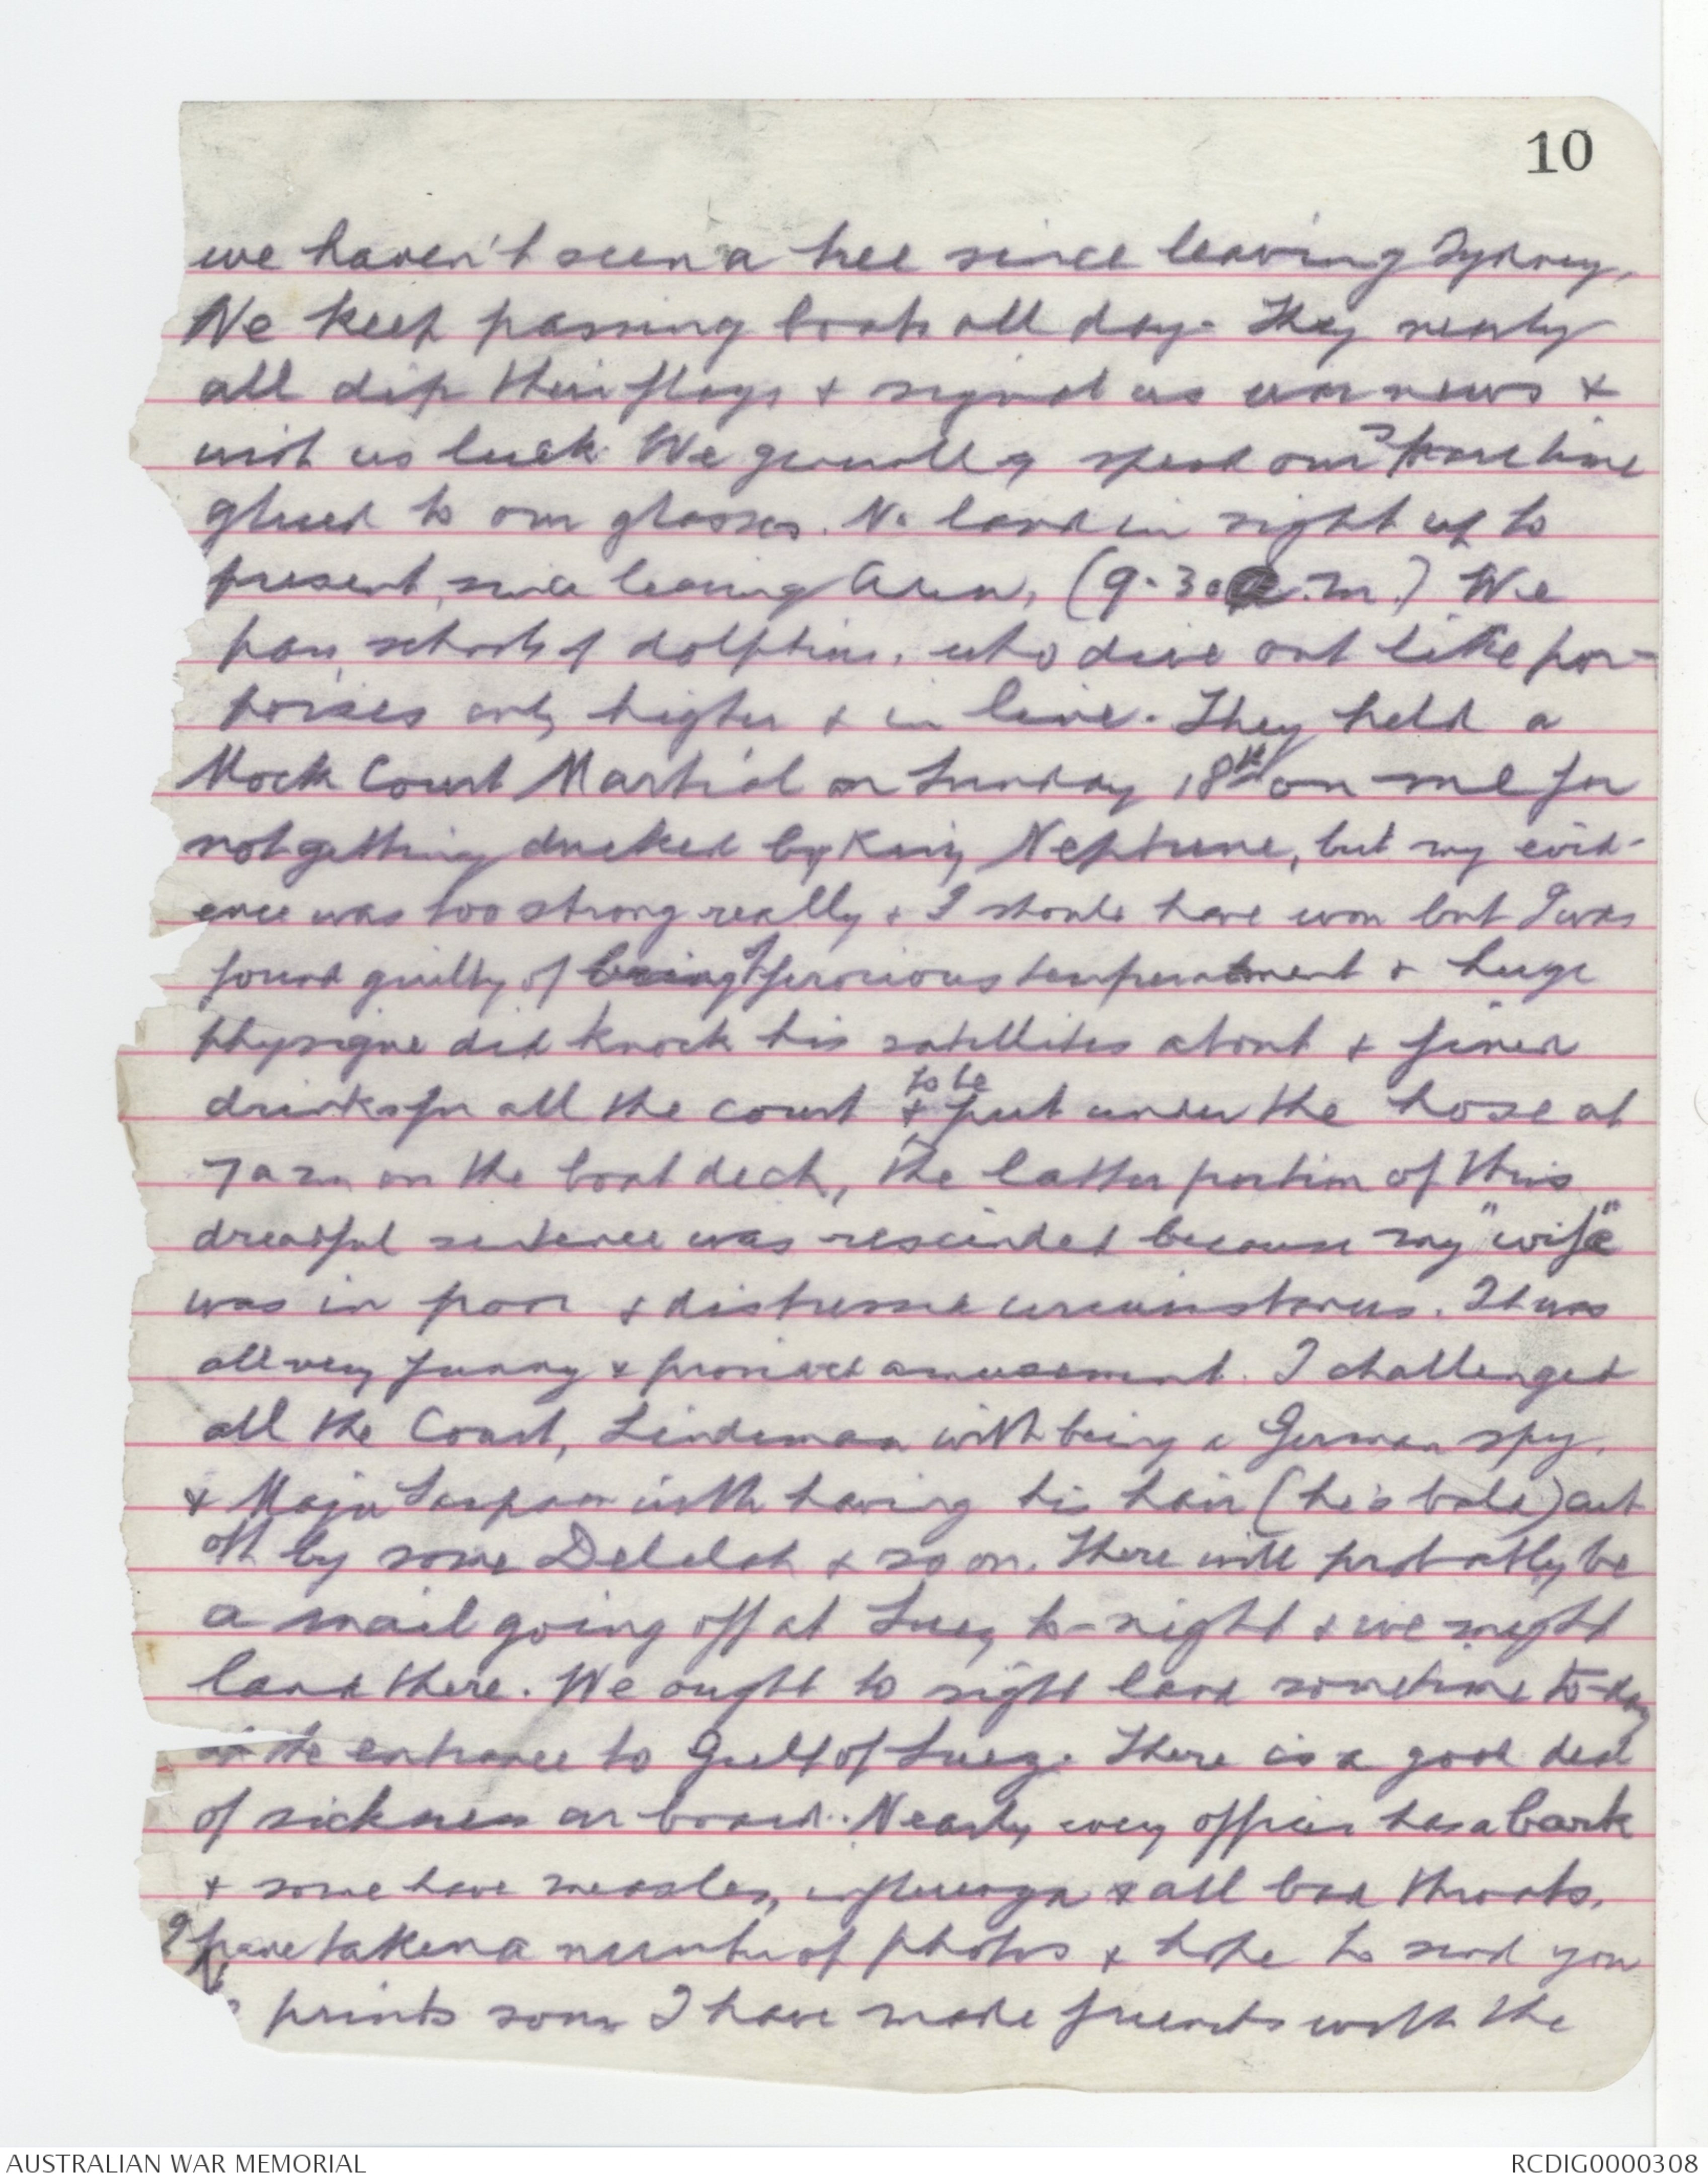 10
we haven't seen a tree since leaving Sydney,
We keep passing boats all day. They nearly
all dip their flags & signal us war news &
wish us luck. We generally spend our spare time
glued to our glasses. No land in sight up to
present, since leaving Aden, (9.30 a.m.) We
pass schools of dolphins, who dive out like por-
poises only higher & in line. They held a
Mock Court Martial on Sunday 18th on me for
not getting ducked by King Neptune, but my evid-
ence was too strong really & I should have won but I was
found guilty of being of ferocious temperament & huge
physique did knock his satellites about & fined
drinks for all the court & to be put under the hose at
7 a m on the boat deck, the latter portion of this
dreadful sentence was rescinded because my "wife"
was in poor & distressed circumstances. It was
all very funny & provided amusement. I challenged
all the Court, Lindeman with being a German spy,
& Major with having his hair (he's bald) cut
off by some Delelah & so on. There will probably be
a mail going off at Suez to-night & we might
land there. We ought to sight land sometime to-day
at the entrance to Gulf of Suez. There is a good deal
of sickness on board. Nearly every officer has a bark
& some have measles, influenza & all bad throats.
I have taken a number of photos & hope to send you
prints soon I have made friends with the
AUSTRALIAN WAR MEMORIAL
RCDIG0000308